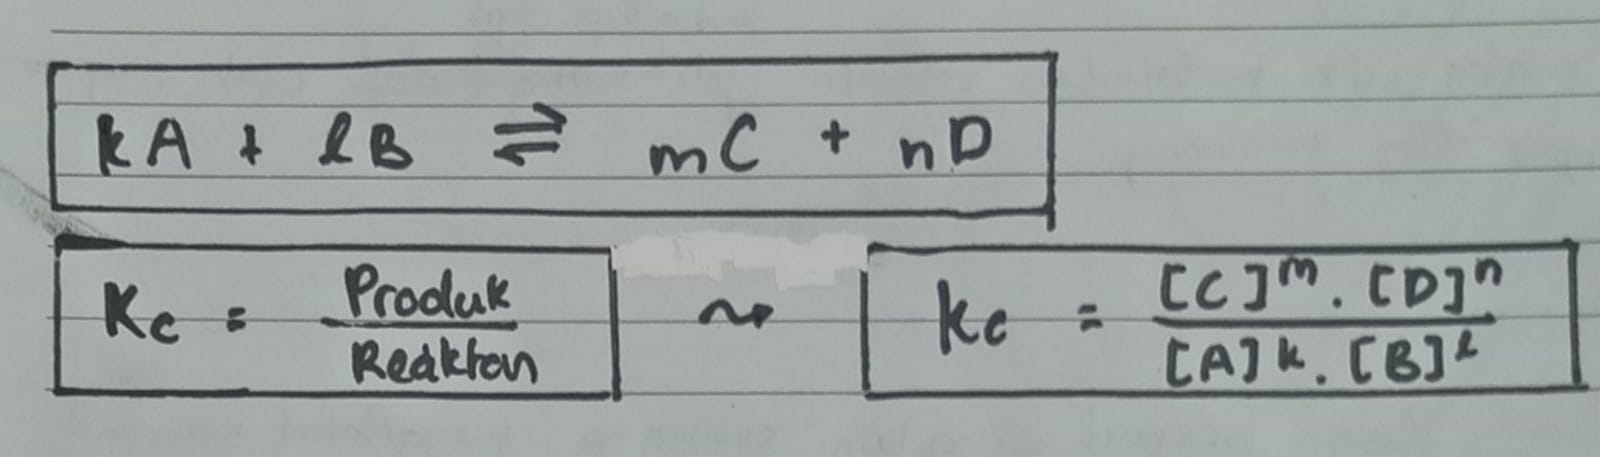 kA + lB ⇌ mC + nD
Kc = Produk / Reaktan ⤳ Kc = [C]^m . [D]^n / [A]^k . [B]^l